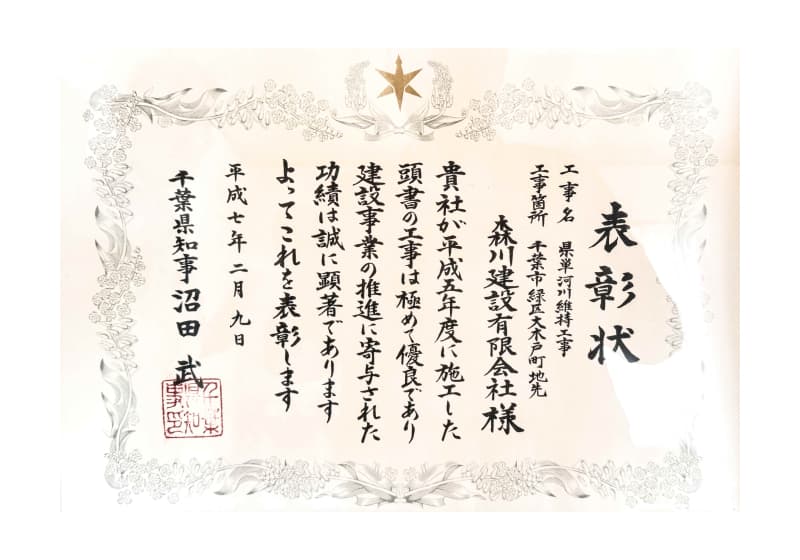 表彰状
工事名 県単河川維持工事
工事箇所 千葉市緑区大木戸町地先
森川建設有限会社 様
貴社が平成五年度に施工した
頭書の工事は極めて優良であり
建設事業の推進に寄与された
功績は誠に顕著であります
よってこれを表彰します
平成七年二月九日
千葉県知事 沼田 武
千葉県知事印